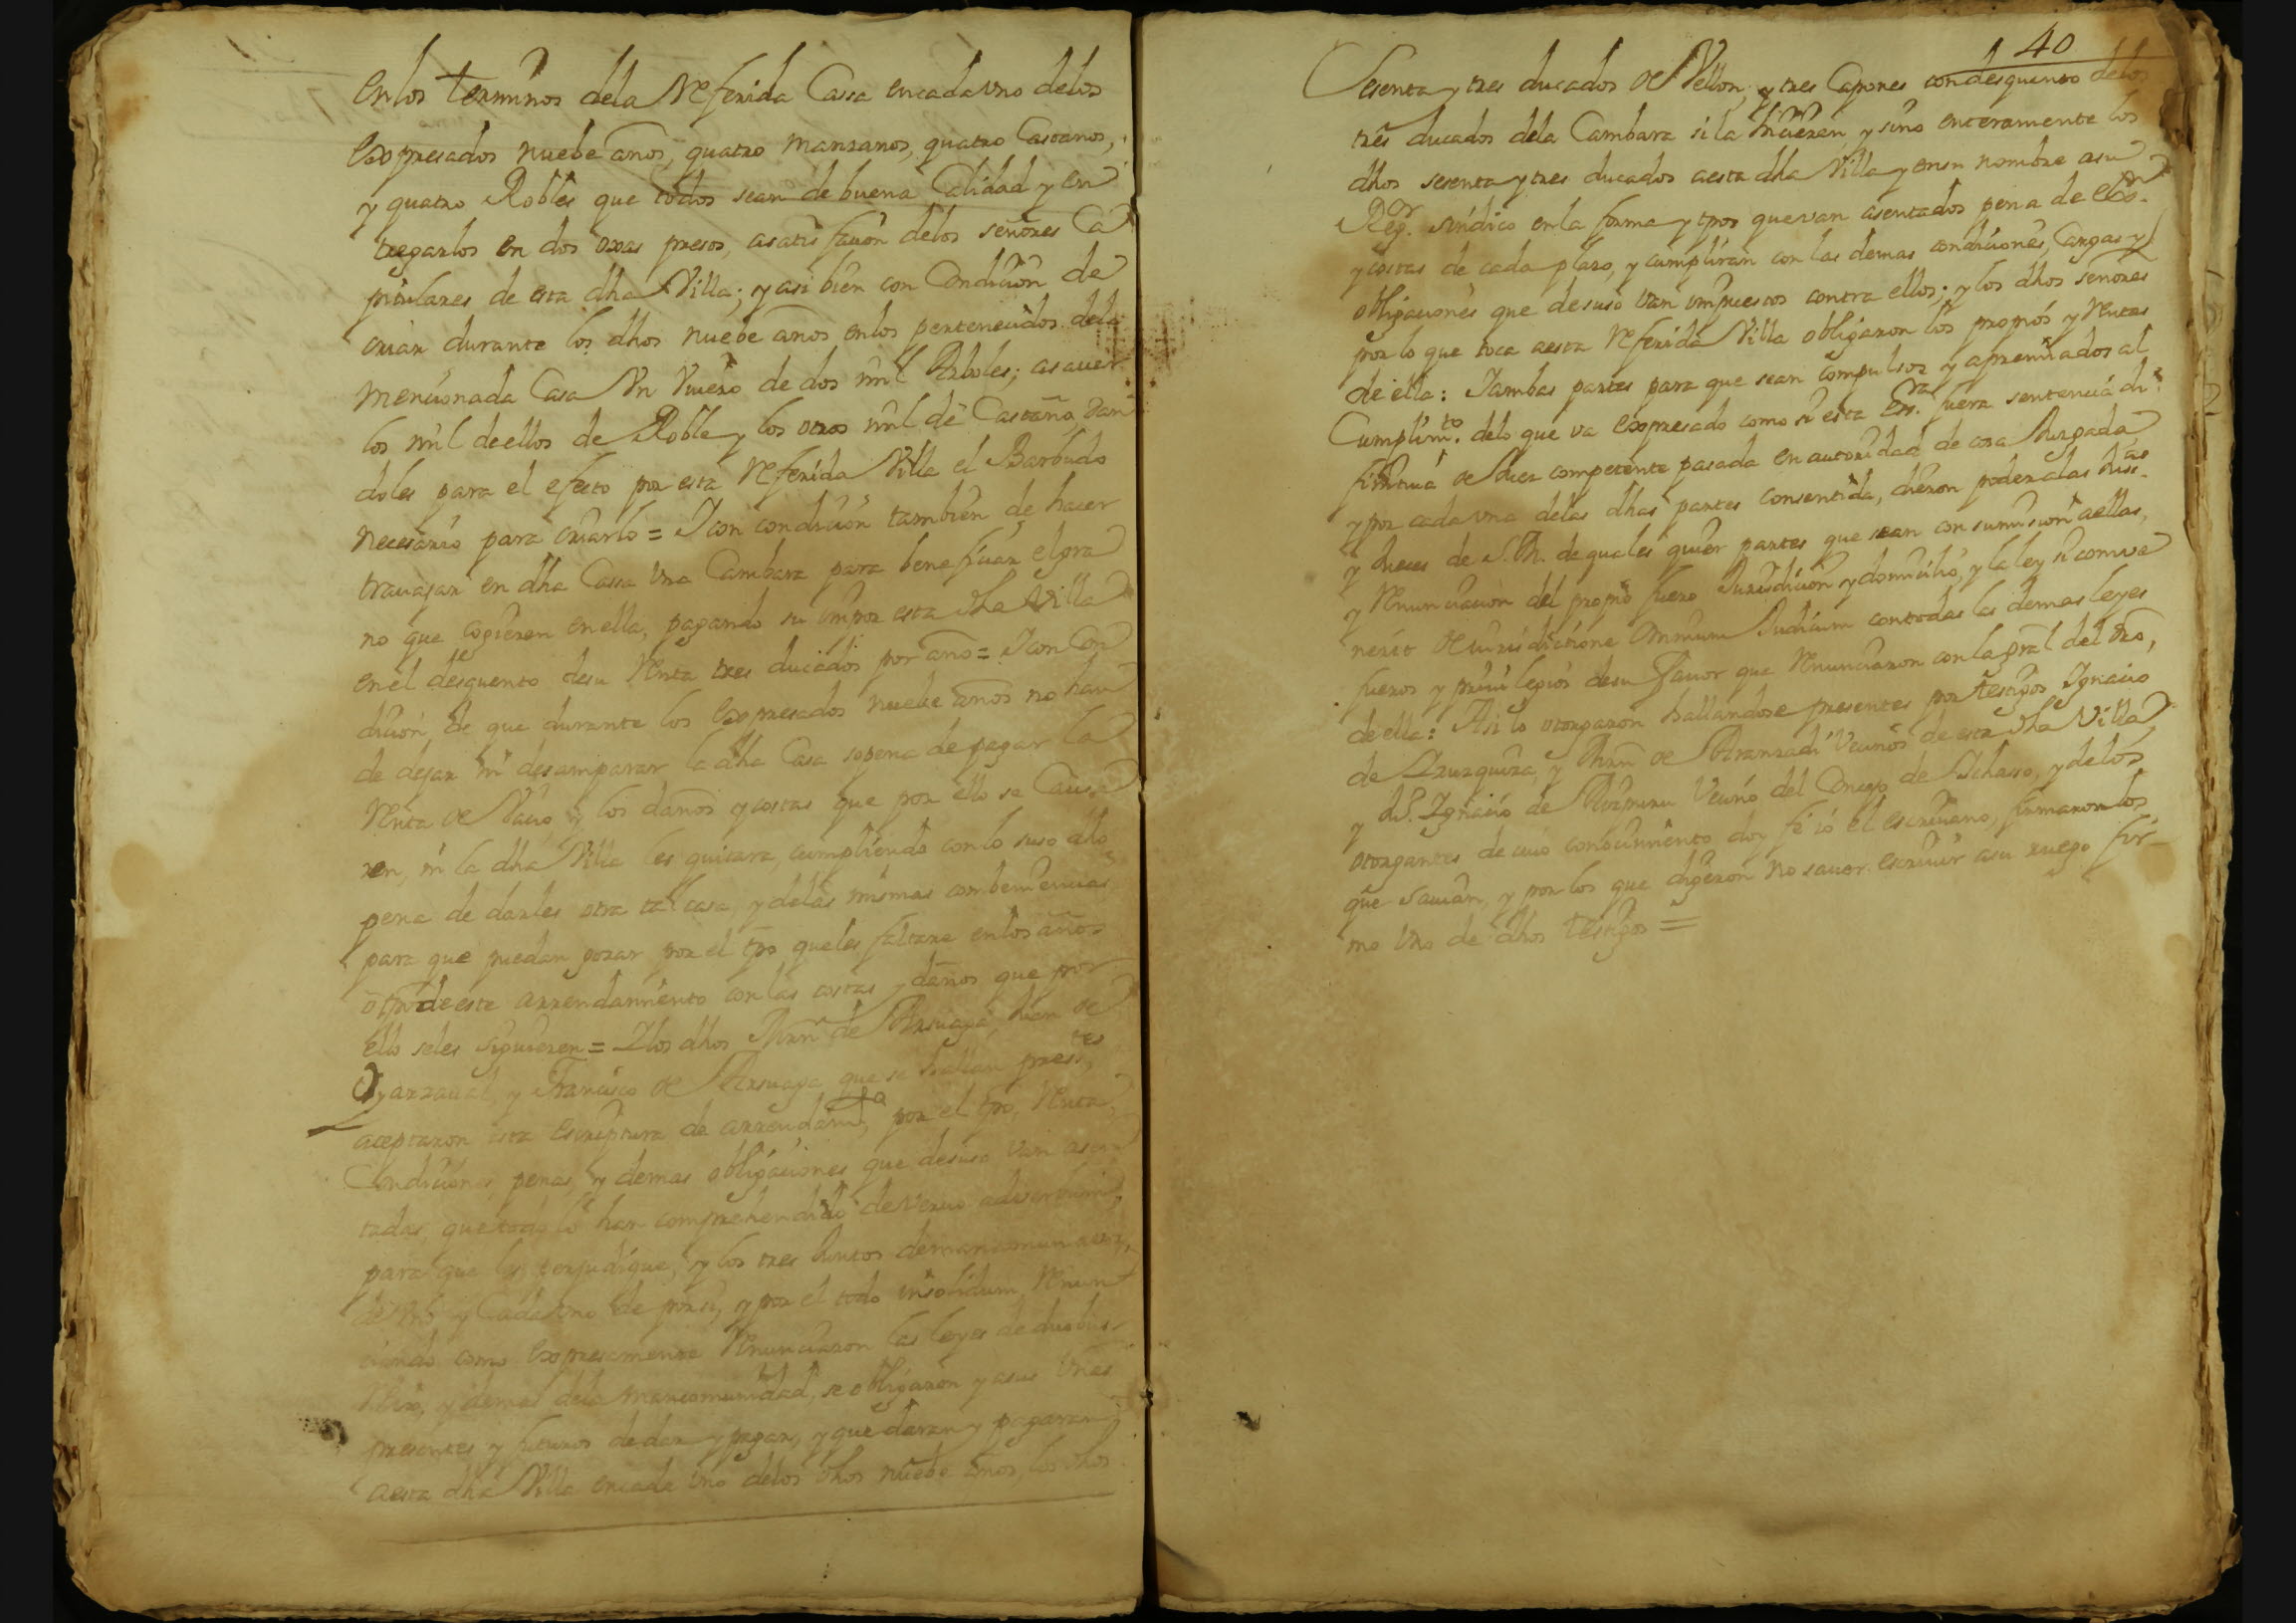 en los terminos dela Referida Cassa encada vno delos
expresados nuebe años, quatro manzanos, quatro Castaños,
y quatro Robles que todos sean de buena Calidad y en
tregarlos en dos oxas presos, asatisfacion delos señores Ca
pitulares de esta dha Villa; y asi bien con Condicion de
criar durante los dhos nuebe años enlos pertenecidos dela
mencionada Casa Vn Viuero de dos mil Arboles; asauer
los mil deellos de Roble y los otros mil de Castaño, dan
doles para el efecto por esta Referida Villa el Barbado
necesario para criarlo = Y con condicion tambien de hacer
trauajar en dha Cassa vna Cambara para beneficiar elgra
no que cogieren enella, pagando su impor esta dha Villa
enel desquento desu Renta tres ducados por año = Y con Con
dicion, de que durante los expresados nuebe años no han
de dejar ni desamparar la dha Casa sopena de pagar la
Renta de Vacio y los daños y costas que por ello se Causa
ren, ni la dha Villa les quitara, cumpliendo conlo suso dho
pena de darles otra tal casa, y delas mismas combeniencias
para que puedan gozar por el tpo queles faltare enlos años
de este arrendamiento con las costas y daños que por
ello seles siguieren = Ylos dhos Mrn de Arsuaga, Juan de
Oyarzaual, y Francisco de Arsuaga que se hallan presẽtes
aceptaron esta Escriptura de arrendamto, por el tpo, Renta,
Condiciones, penas, y demas obligaciones que desuso van asen
tadas, que todo lo han comprehendido deVeruo aduerbum
para que les perjudique, y los tres Juntos demancomun avoz
de vno y Cadavno de porsi, y por el todo insolidum, Renun
ciando como expresamente Renunciaron las leyes de duobus
y demas dela mancomunidad, se obligaron y asus Vnes
presentes y futuros dedar y pagar, y que daran y pagaran
aesta dha Villa encada vno delos dhos nuebe años, los dhos
40
Sesenta y tres ducados de Vellon, y tres Capones condesquento delos
tres ducados dela Cambara si la hicieren, y sino enteramente los
dhos sesenta y tres ducados aesta dha Villa y ensu nombre asu
Regor sindico enla forma y tpos quevan asentados pena de exon
y costas de cada plazo, y cumpliran con las demas condiciones, Cargas y
obligaciones que desuso van impuestos contra ellos; y los dhos señores
por lo que toca aesta Referida Villa obligaron los propios y Rentas
de ella: Yambas partes para que sean compulsos y apremiados al
Cumplimto delo que va expresado como si esta Essra fuera sentencia di
finitiua de Juez competente pasada en autoridad de cosa Juzgada
y por cada vna delas dhas partes consentida, dieron poder alas Jusas
y Jueces de S. M. de quales quier partes que sean con sumision aellas,
y Renunciacion del propio fuero Jurisdicion y domicilio, y la ley si conue
nerit de iurisdictione Omnium Judicum contodas las demas leyes
fueros y priuilegios desu fauor que Renunciaron con la gral del dro,
de ella: Asi lo otorgaron hallandose presentes por testigos Ygnacio
de Yruzquiza, y Mrn de Aranzadi Vecinos de esta dha Villa
y Dn. Ygnacio de Vecino del Concejo de y delos
otorgantes de cuio conocimiento doy fe io el escriuano, firmaron los
que sauian, y por los que digeron no sauer escriuir asu ruego fir
mo vno de dhos testigos =